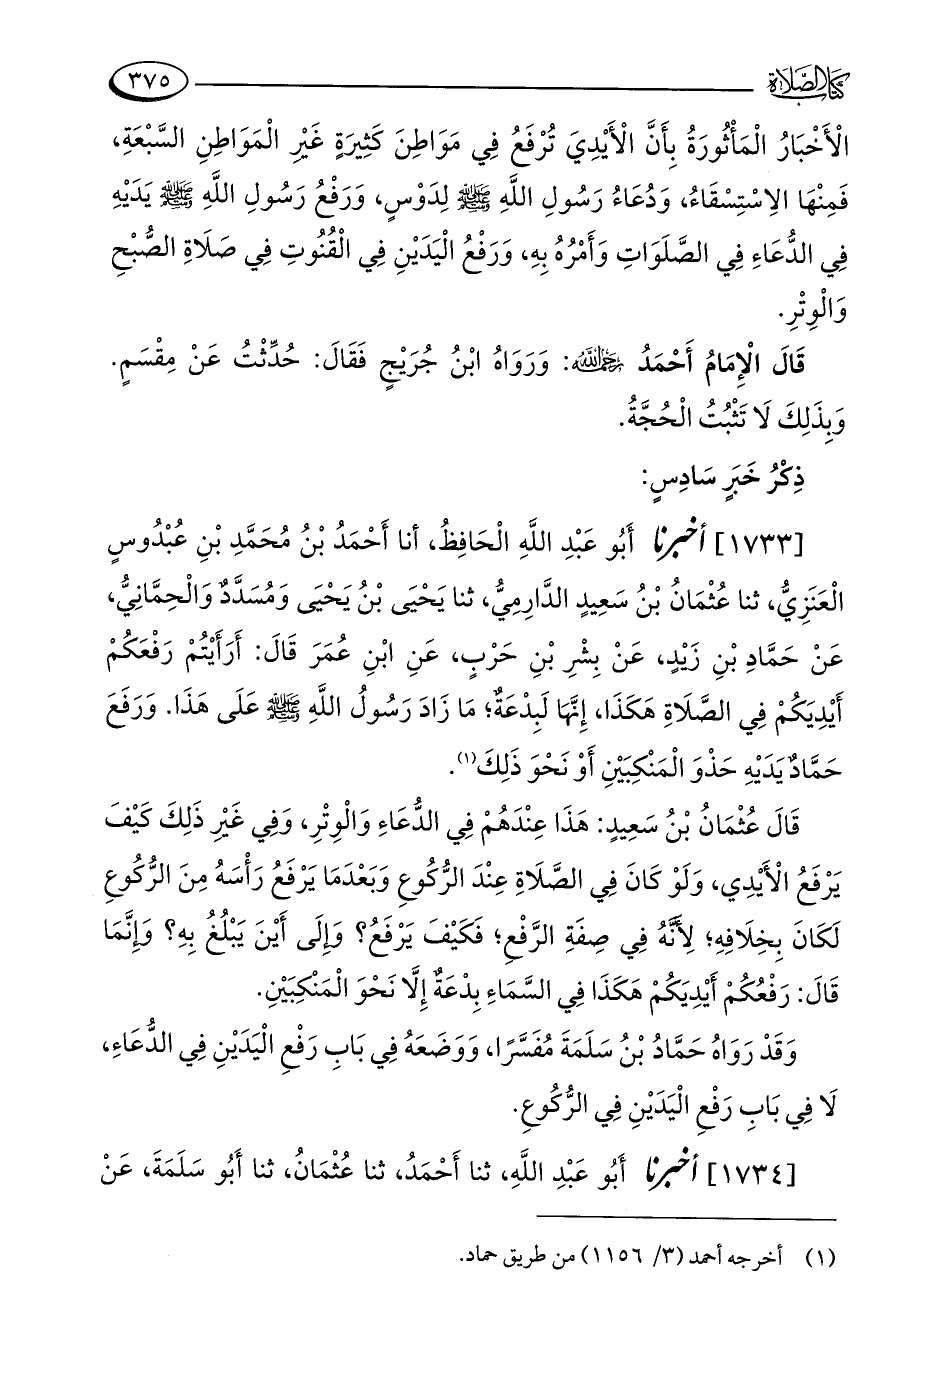 كتاب الصلاة ٣٧٥
الْأَخْبَارُ الْمَأْثُورَةُ بِأَنَّ الْأَيْدِيَ تُرْفَعُ فِي مَوَاطِنَ كَثِيرَةٍ غَيْرِ الْمَوَاطِنِ السَّبْعَةِ،
فَمِنْهَا الِاسْتِسْقَاءُ، وَدُعَاءُ رَسُولِ اللَّهِ ﷺ لِدَوْسٍ، وَرَفْعُ رَسُولِ اللَّهِ ﷺ يَدَيْهِ
فِي الدُّعَاءِ فِي الصَّلَوَاتِ وَأَمْرُهُ بِهِ، وَرَفْعُ الْيَدَيْنِ فِي الْقُنُوتِ فِي صَلَاةِ الصُّبْحِ
وَالْوِتْرِ.
قَالَ الْإِمَامُ أَحْمَدُ رحمه الله: وَرَوَاهُ ابْنُ جُرَيْجٍ فَقَالَ: حُدِّثْتُ عَنْ مِقْسَمٍ.
وَبِذَلِكَ لَا تَثْبُتُ الْحُجَّةُ.
ذِكْرُ خَبَرٍ سَادِسٍ:
[١٧٣٣] أخبرنا أَبُو عَبْدِ اللَّهِ الْحَافِظُ، أنا أَحْمَدُ بْنُ مُحَمَّدِ بْنِ عُبْدُوسٍ
الْعَنَزِيُّ، ثنا عُثْمَانُ بْنُ سَعِيدٍ الدَّارِمِيُّ، ثنا يَحْيَى بْنُ يَحْيَى وَمُسَدَّدٌ وَالْحِمَّانِيُّ،
عَنْ حَمَّادِ بْنِ زَيْدٍ، عَنْ بِشْرِ بْنِ حَرْبٍ، عَنِ ابْنِ عُمَرَ قَالَ: أَرَأَيْتُمْ رَفْعَكُمْ
أَيْدِيَكُمْ فِي الصَّلَاةِ هَكَذَا، إِنَّهَا لَبِدْعَةٌ؛ مَا زَادَ رَسُولُ اللَّهِ ﷺ عَلَى هَذَا. وَرَفَعَ
حَمَّادٌ يَدَيْهِ حَذْوَ الْمَنْكِبَيْنِ أَوْ نَحْوَ ذَلِكَ(١).
قَالَ عُثْمَانُ بْنُ سَعِيدٍ: هَذَا عِنْدَهُمْ فِي الدُّعَاءِ وَالْوِتْرِ، وَفِي غَيْرِ ذَلِكَ كَيْفَ
يَرْفَعُ الْأَيْدِي، وَلَوْ كَانَ فِي الصَّلَاةِ عِنْدَ الرُّكُوعِ وَبَعْدَمَا يَرْفَعُ رَأْسَهُ مِنَ الرُّكُوعِ
لَكَانَ بِخِلَافِهِ؛ لِأَنَّهُ فِي صِفَةِ الرَّفْعِ؛ فَكَيْفَ يَرْفَعُ؟ وَإِلَى أَيْنَ يَبْلُغُ بِهِ؟ وَإِنَّمَا
قَالَ: رَفْعُكُمْ أَيْدِيَكُمْ هَكَذَا فِي السَّمَاءِ بِدْعَةٌ إِلَّا نَحْوَ الْمَنْكِبَيْنِ.
وَقَدْ رَوَاهُ حَمَّادُ بْنُ سَلَمَةَ مُفَسَّرًا، وَوَضَعَهُ فِي بَابِ رَفْعِ الْيَدَيْنِ فِي الدُّعَاءِ،
لَا فِي بَابِ رَفْعِ الْيَدَيْنِ فِي الرُّكُوعِ.
[١٧٣٤] أخبرنا أَبُو عَبْدِ اللَّهِ، ثنا أَحْمَدُ، ثنا عُثْمَانُ، ثنا أَبُو سَلَمَةَ، عَنْ
(١) أخرجه أحمد (٣/ ١١٥٦) من طريق حماد.